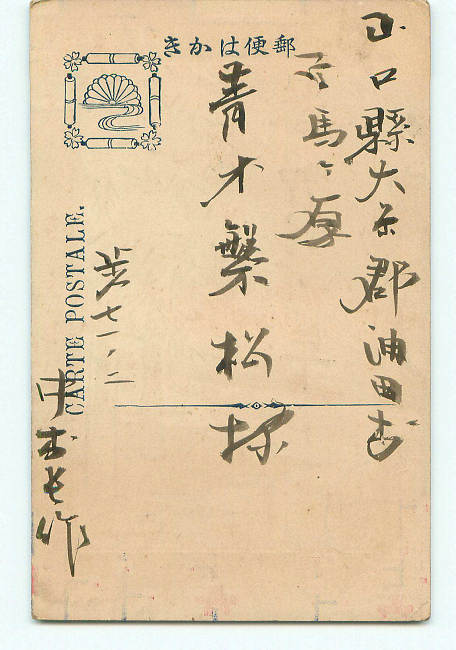 きかは便郵
山口縣大津郡油田村
馬ヶ原
青木繁松様
歩七一ノ二
中村長作
CARTE POSTALE.